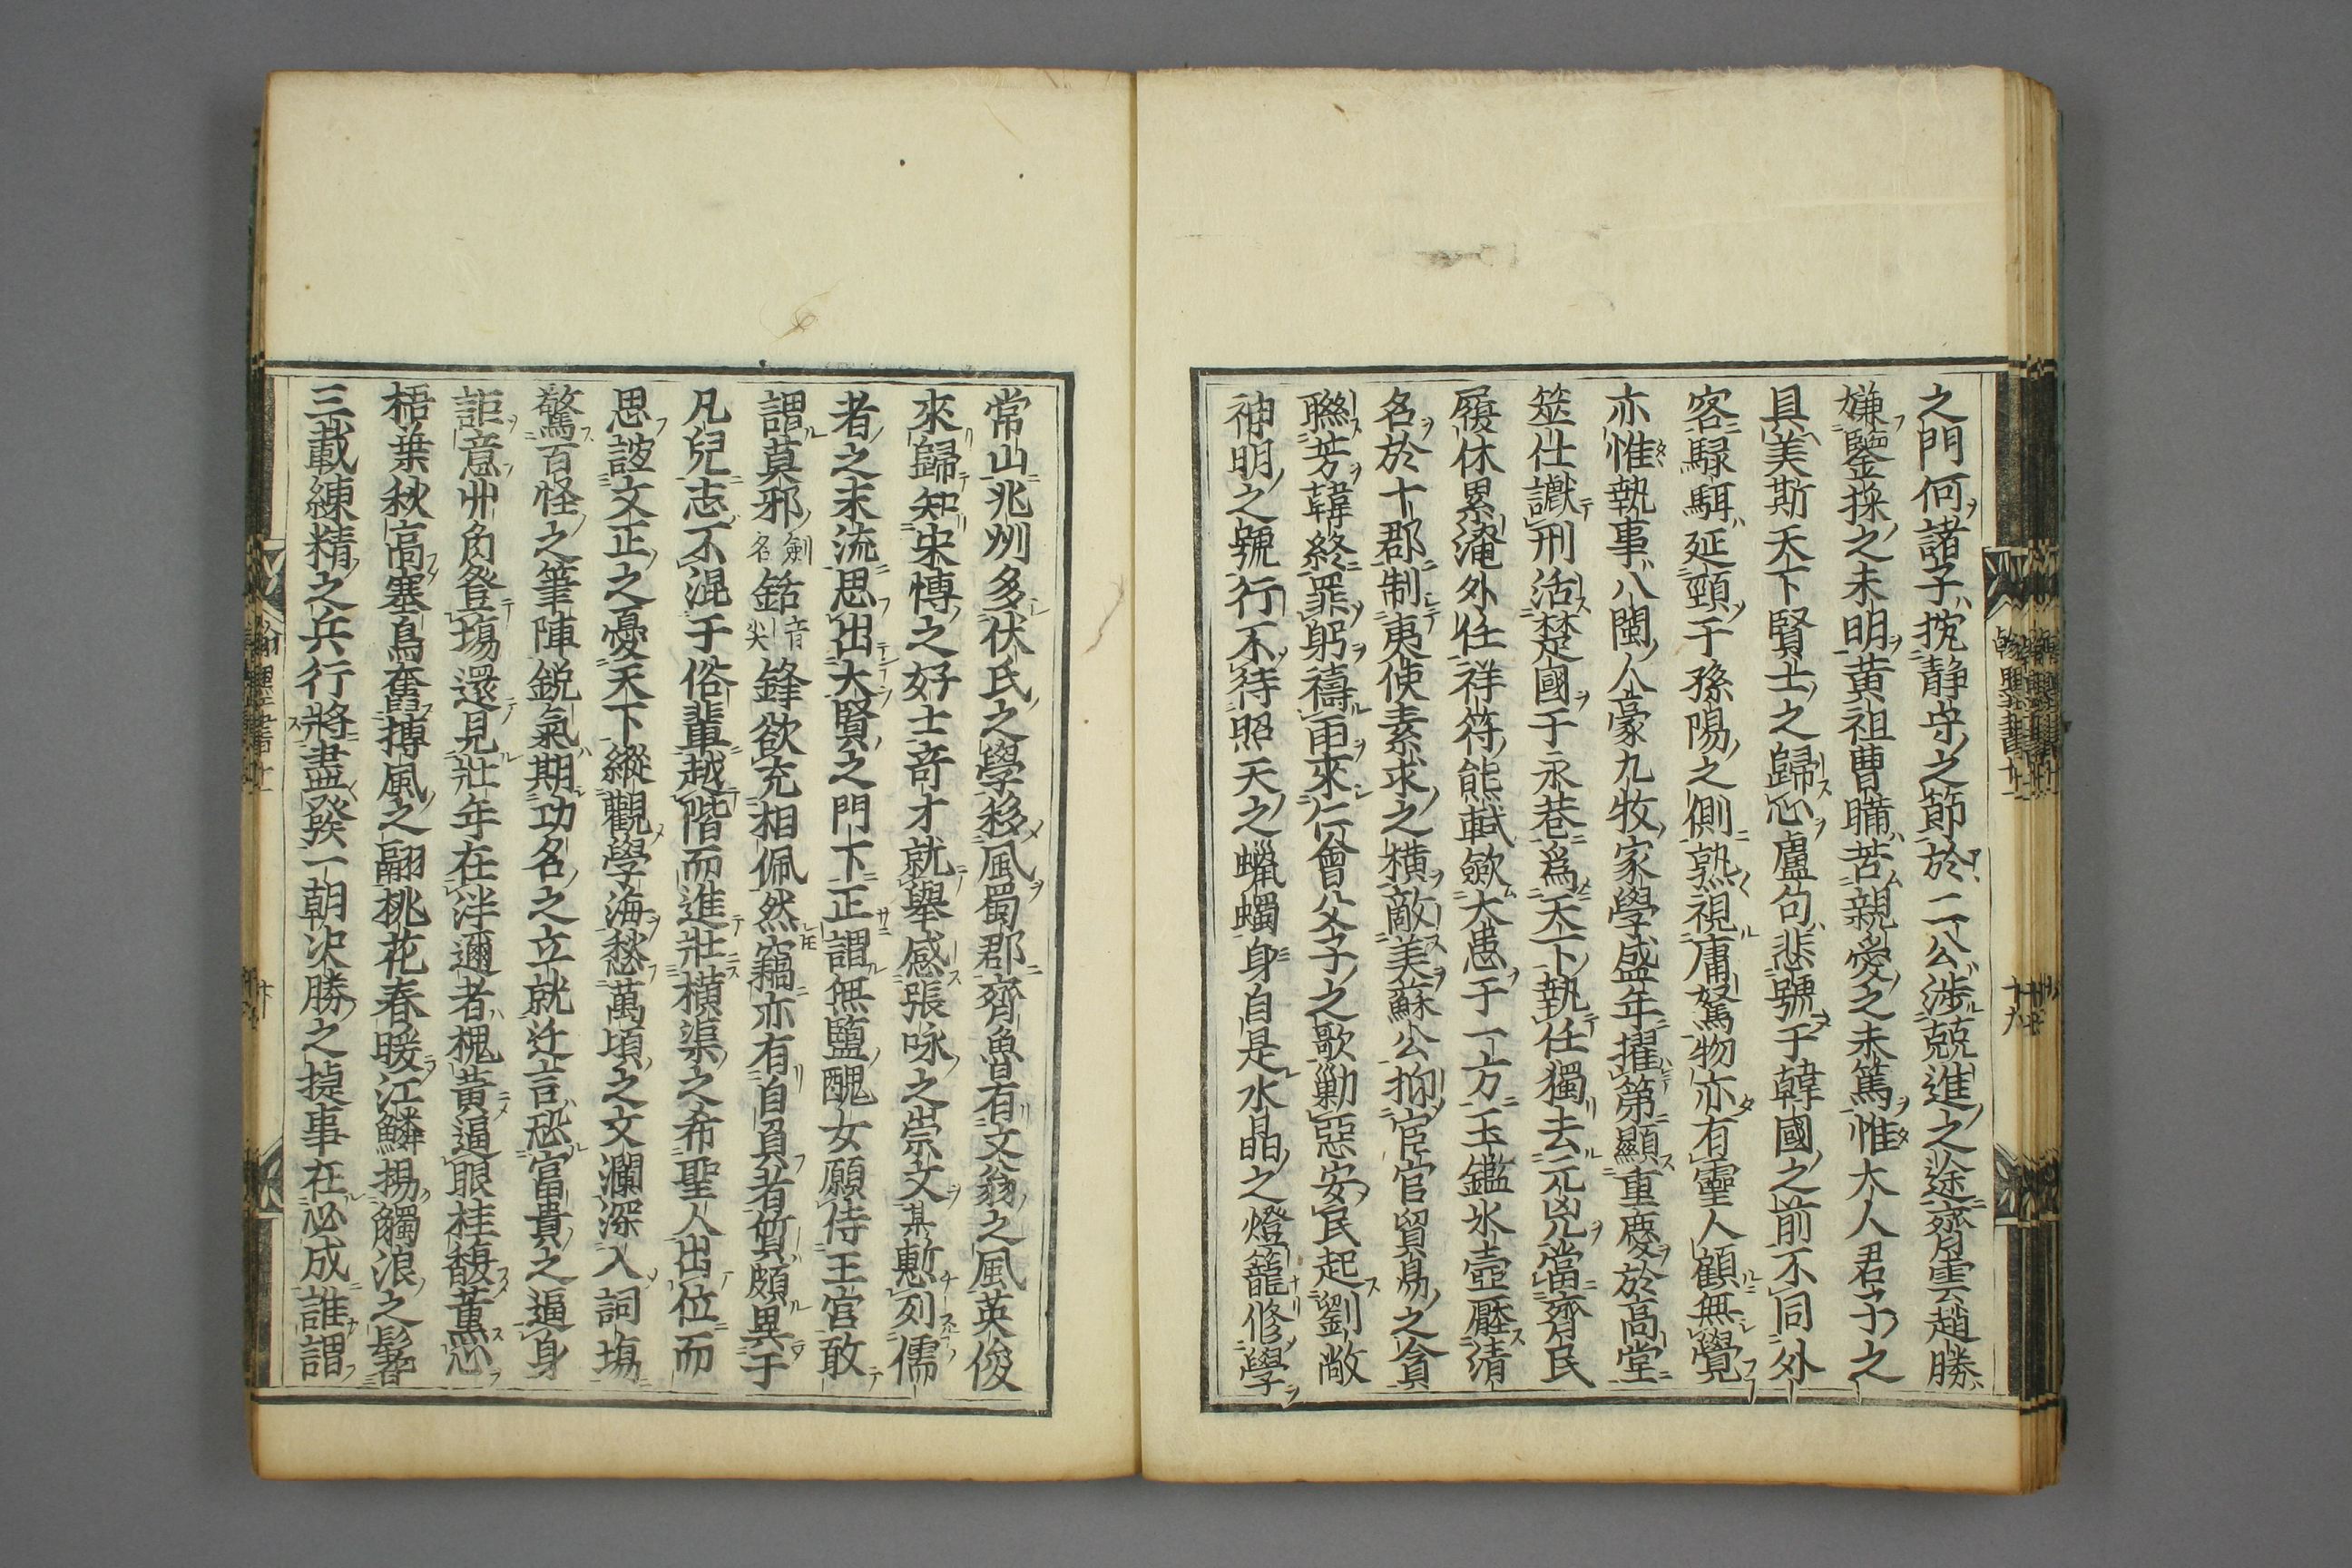 之門何諸子捝靜守之節於二公涉兢進之途齊雲趙勝
嫌鑒採之未明黄祖曹瞞苦親愛之未篤惟大人君子之
具美斯天下賢士之歸心盧句悲號于韓國之前不同外
容騄駬延頸于孫陽之側熟視庸駑物亦有靈人顧無覺
亦惟執事八閩人豪九牧家學盛年擢第顯重慶於高堂
筮仕讞刑活楚國于永巷爲天下執任獨去元兇當齊民
履休累淹外任祥符熊軾歛大愚于一方玉鑑氷壺壓清
名於十郡制夷使素求之横敵美蘇公抑宦官貿易之貪
聮芳韓終罪躬禱雨來仁會父子之歌勦惡安民起劉敞
神明之號行不待照天之蠟蠋身自是水晶之燈籠修學
常山兆州多伏氏之學移風蜀郡齊魯有文翁之風英俊
來歸知宋慱之好士竒才就舉感張咏之崇文某慙列儒
者之末流思出大賢之門下正謂無鹽醜女願侍王宫敢
謂莫邪劍名銛音尖鋒欲充相佩然竊亦有自負者質頗異于
凡兒志不混于俗輩越階而進壯横渠之希聖人出位而
思詖文正之憂天下縱觀學海愁萬頃之文瀾深入詞塲
驚百怪之筆陣鋭氣期功名之立就迂言恐富貴之逼身
詎意丱角登塲還見壯年在泮邇者槐黄逼眼桂馥薫心
梧葉秋高塞鳥奮搏風之翮桃花春暖江鱗揚觸浪之鬐
三載練精之兵行將盡發一朝决勝之㨗事在必成誰謂